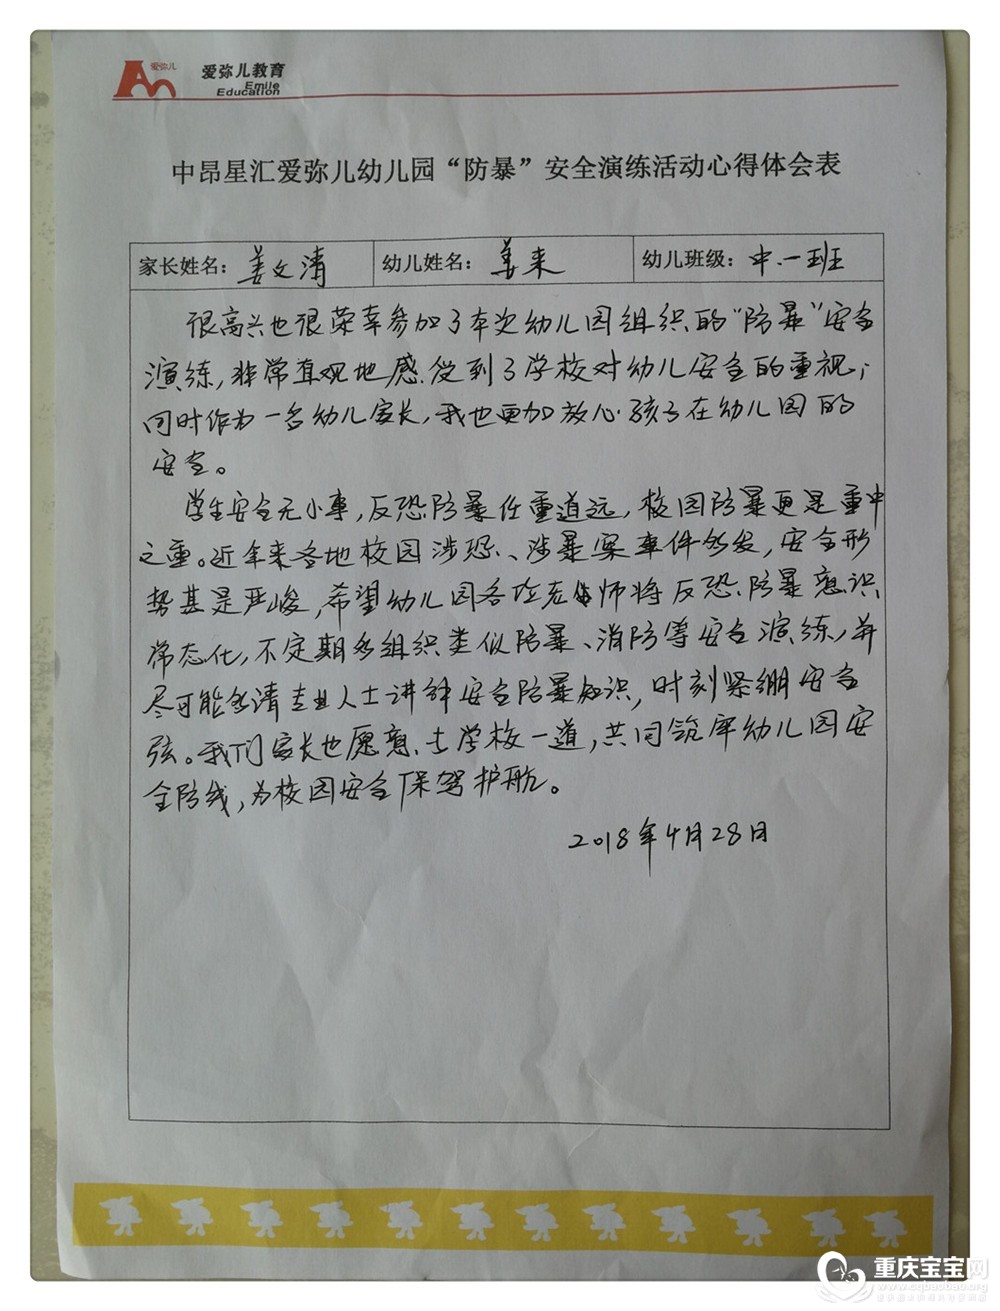 爱弥儿
爱弥儿教育
Emile
Education
中昂星汇爱弥儿幼儿园“防暴”安全演练活动心得体会表
家长姓名：姜文清 幼儿姓名：姜来 幼儿班级：中一班
很高兴也很荣幸参加了本次幼儿园组织的“防暴”安全
演练，非常直观地感受到了学校对幼儿安全的重视；
同时作为一名幼儿家长，我也更加放心孩子在幼儿园的
安全。
学生安全无小事，反恐防暴任重道远，校园防暴更是重中
之重。近年来各地校园涉恐、涉暴案事件多发，安全形
势甚是严峻，希望幼儿园各位老师将反恐防暴意识
常态化，不定期多组织类似防暴、消防等安全演练，并
尽可能多请专业人士讲解安全防暴知识，时刻紧绷安全
弦。我们家长也愿意与学校一道，共同筑牢幼儿园安
全防线，为校园安全保驾护航。
2018年4月28日
重庆宝宝网
www.cqbaobao.org